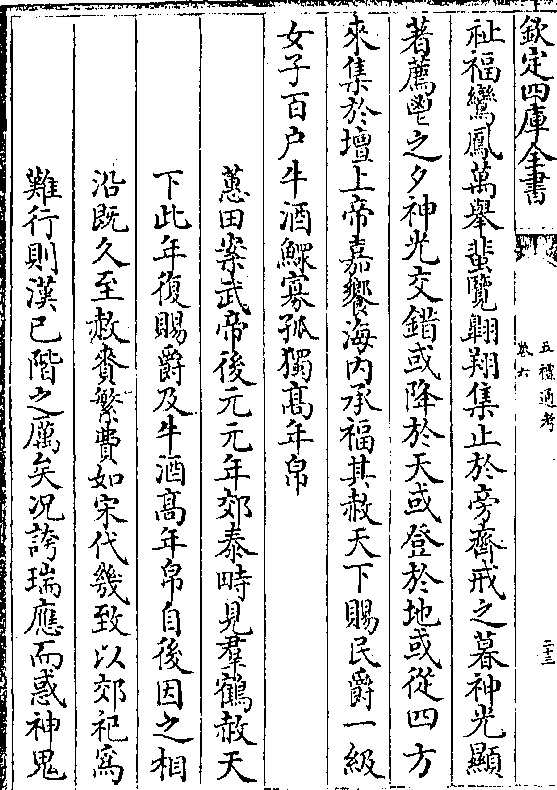 欽定四庫全書
五禮通考
卷六
二十三
祉福鸞鳳萬舉蜚覽翺翔集止於旁齋戒之暮神光顯
著薦鬯之夕神光交錯或降於天或登於地或從四方
來集於壇上帝嘉饗海内承福其赦天下賜民爵一級
女子百户牛酒鰥寡孤獨髙年帛
蕙田案武帝後元元年郊泰畤見羣鶴赦天
下此年復賜爵及牛酒髙年帛自後因之相
沿既久至赦賚繁費如宋代幾致以郊祀為
難行則漢已階之厲矣况誇瑞應而惑神鬼